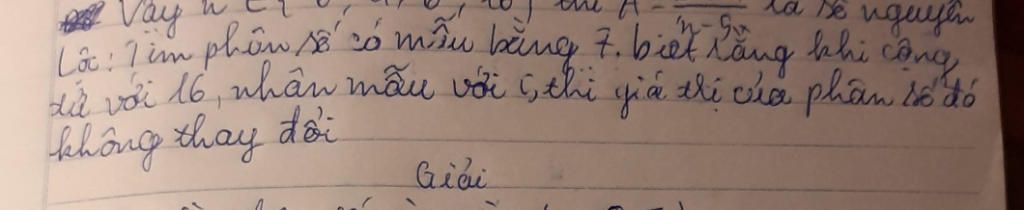 Vậy n
là số nguyên
Lôc: Tìm phân số có mẫu bằng 7. biết rằng khi cộng
tử với 16, nhân mẫu với 5, thì giá trị của phân số đó
không thay đổi
Giải